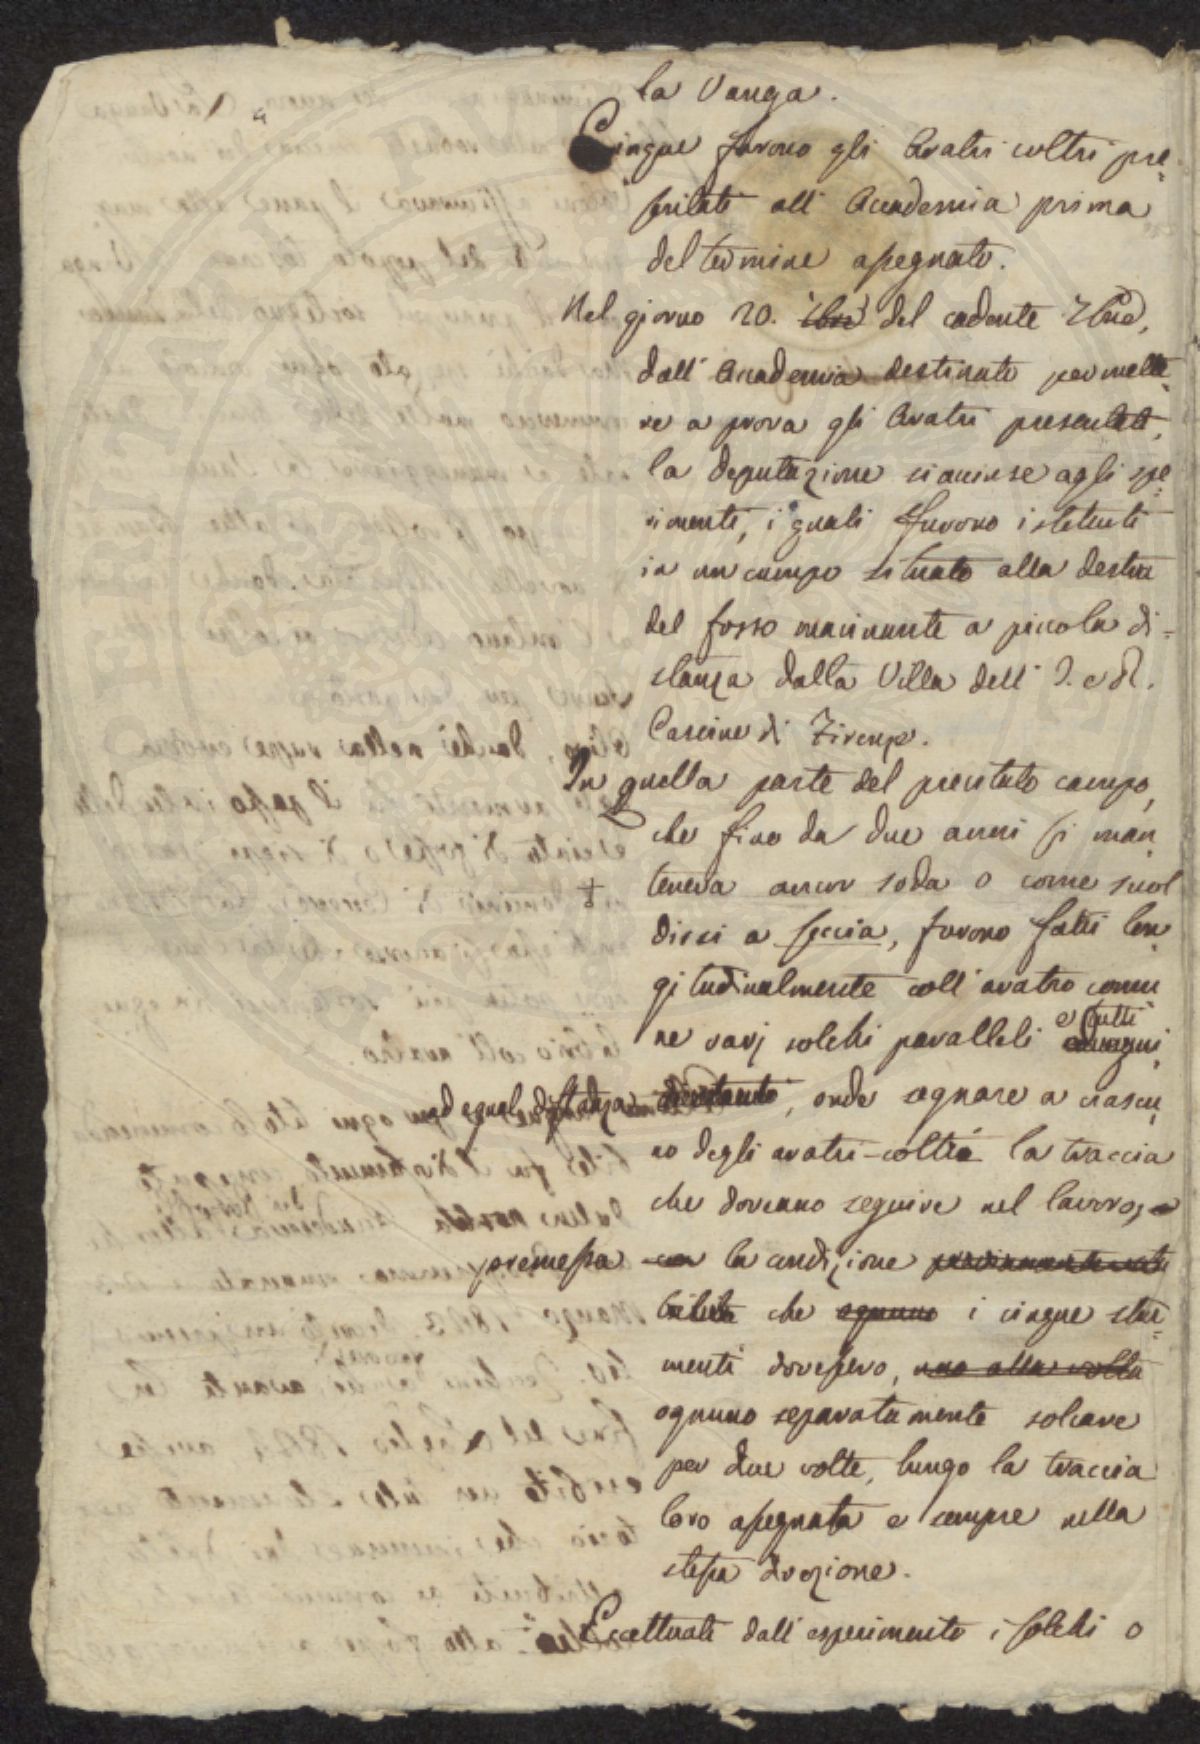 la Vanga.
Cinque furono gli Aratri coltri pre=
sentati all' Accademia prima
del termine assegnato.
Nel giorno 20. del cadente 7bre,
dall' Accademia destinato per mette=
re a prova gli Aratri presentati,
la deputazione si accinse agli spe=
rimenti, i quali furono istituiti
in un campo situato alla destra
del fosso macinante a piccola di=
stanza dalla Villa dell' I. e R.
Cascine di Firenze.
In quella parte del precitato campo,
che fino da due anni si man
teneva ancor soda o come suol
dirsi a seccia, furono fatti lon
gitudinalmente coll' aratro comu
ne varj solchi paralleli e tutti
ad egual distanza distanti, onde segnare a ciascu
no degli aratri-coltri la traccia
che doveano seguire nel lavoro,
premessa con la condizione
che ognuno i cinque stru=
menti dovessero, uno alla volta
ognuno separatamente solcare
per due volte, lungo la traccia
loro assegnata e sempre nella
stessa direzione.
Eccettuati dall' esperimento i solchi o